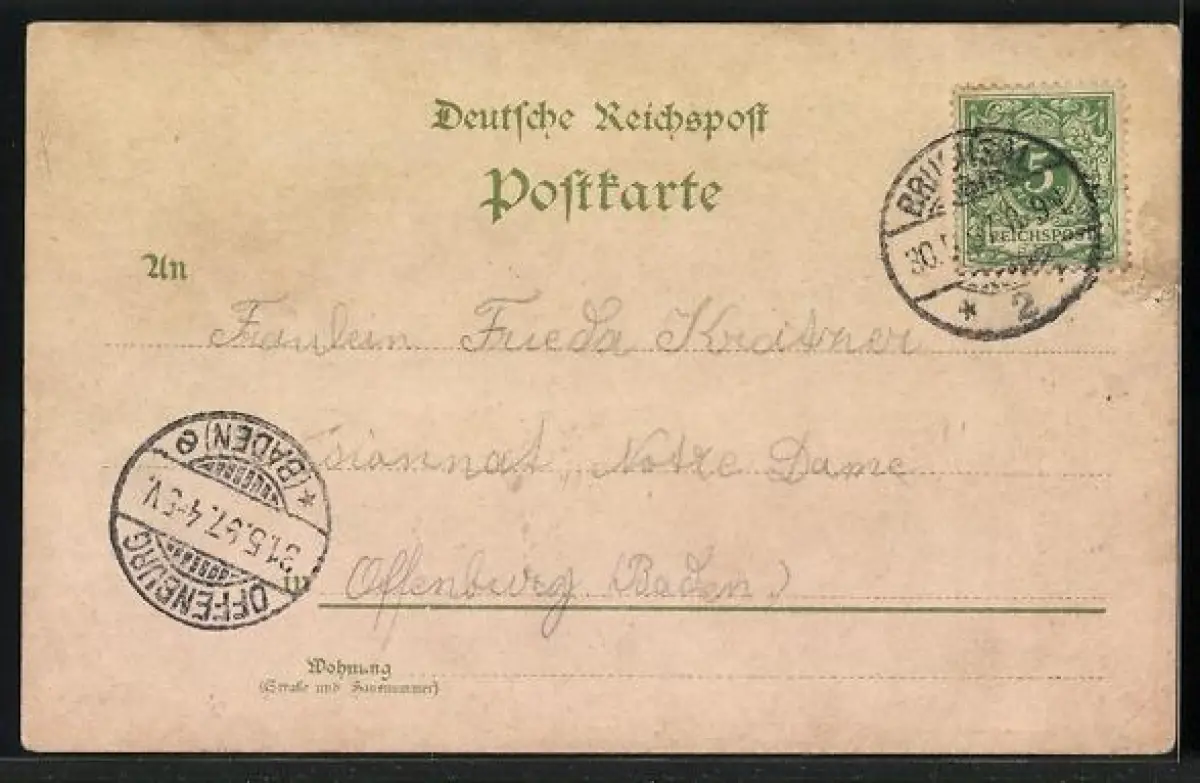 Deutsche Reichspost
Postkarte
5
REICHSPOST
30.
* 2
An
Fräulein Frieda
Notre Dame
* (BADEN) e
31.5.97. 4-5 V.
OFFENBURG
in Offenburg (Baden)
Wohnung
(Straße und Hausnummer)